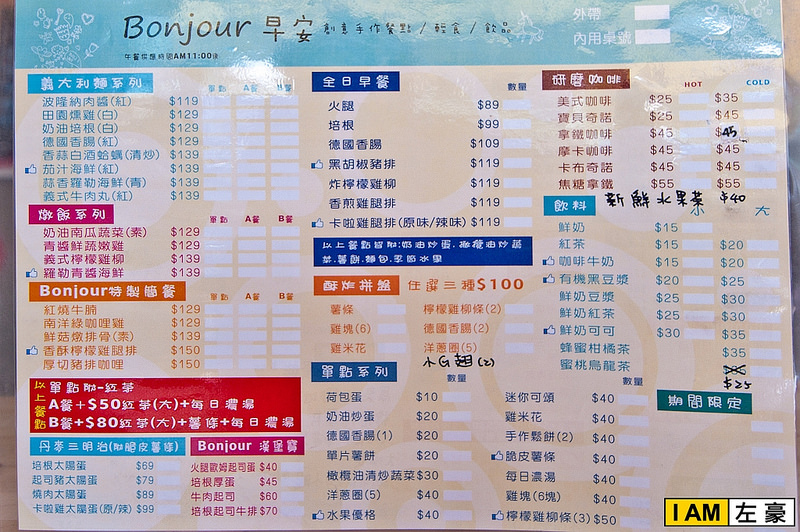 Bonjour 早安 創意手作餐點 / 輕食 / 飲品
外帶
內用桌號
午餐供應時間AM11:00後
義大利麵系列 單點 A餐 B餐
波隆納肉醬(紅) $119
田園燻雞(白) $129
奶油培根(白) $129
德國香腸(紅) $129
香蒜白酒蛤蠣(清炒) $139
茄汁海鮮(紅) $139
蒜香羅勒海鮮(青) $139
義式牛肉丸(紅) $139
燉飯系列 單點 A餐 B餐
奶油南瓜蔬菜(素) $129
青醬鮮蔬嫩雞 $129
義式檸檬雞柳 $139
羅勒青醬海鮮 $139
Bonjour特製簡餐 單點 A餐 B餐
紅燒牛腩 $129
南洋綠咖哩雞 $129
鮮菇燉排骨(素) $139
香酥檸檬雞腿排 $150
厚切豬排咖哩 $150
以上餐點
單點附-紅茶
A餐+$50紅茶(大)+每日濃湯
B餐+$80紅茶(大)+薯條+每日濃湯
丹麥三明治(附脆皮薯條)
培根太陽蛋 $69
起司豬太陽蛋 $79
燒肉太陽蛋 $89
卡啦雞太陽蛋(原/辣) $99
Bonjour 漢堡寶
火腿歐姆起司蛋 $40
培根厚蛋 $45
牛肉起司 $60
培根起司牛排 $70
全日早餐 數量
火腿 $89
培根 $99
德國香腸 $109
黑胡椒豬排 $119
炸檸檬雞柳 $119
香煎雞腿排 $119
卡啦雞腿排(原味/辣味) $119
以上餐點皆附:奶油炒蛋.橄欖油炒蔬
菜.薯餅.麵包.季節水果
酥炸拼盤 任選三種$100
薯條 檸檬雞柳條(2)
雞塊(6) 德國香腸(2)
雞米花 洋蔥圈(5)
小G翅(2)
單點系列 數量 數量
荷包蛋 $10
奶油炒蛋 $20
德國香腸(1) $20
單片薯餅 $20
橄欖油清炒蔬菜 $30
洋蔥圈(5) $40
水果優格 $40
迷你可頌 $40
雞米花 $40
手作鬆餅(2) $40
脆皮薯條 $40
每日濃湯 $40
雞塊(6塊) $40
檸檬雞柳條(3) $50
研磨咖啡 HOT COLD
美式咖啡 $25 $35
寶貝奇諾 $25 $45
拿鐵咖啡 $45 $45
摩卡咖啡 $45 $45
卡布奇諾 $45 $45
焦糖拿鐵 $55 $55
飲料 新鮮水果茶 $40
小 大
鮮奶 $15
紅茶 $15 $20
咖啡牛奶 $15 $20
有機黑豆漿 $20 $25
鮮奶豆漿 $25 $30
鮮奶紅茶 $25 $30
鮮奶可可 $30 $35
蜂蜜柑橘茶 $35
蜜桃烏龍茶
$25
期間限定
I AM 左豪